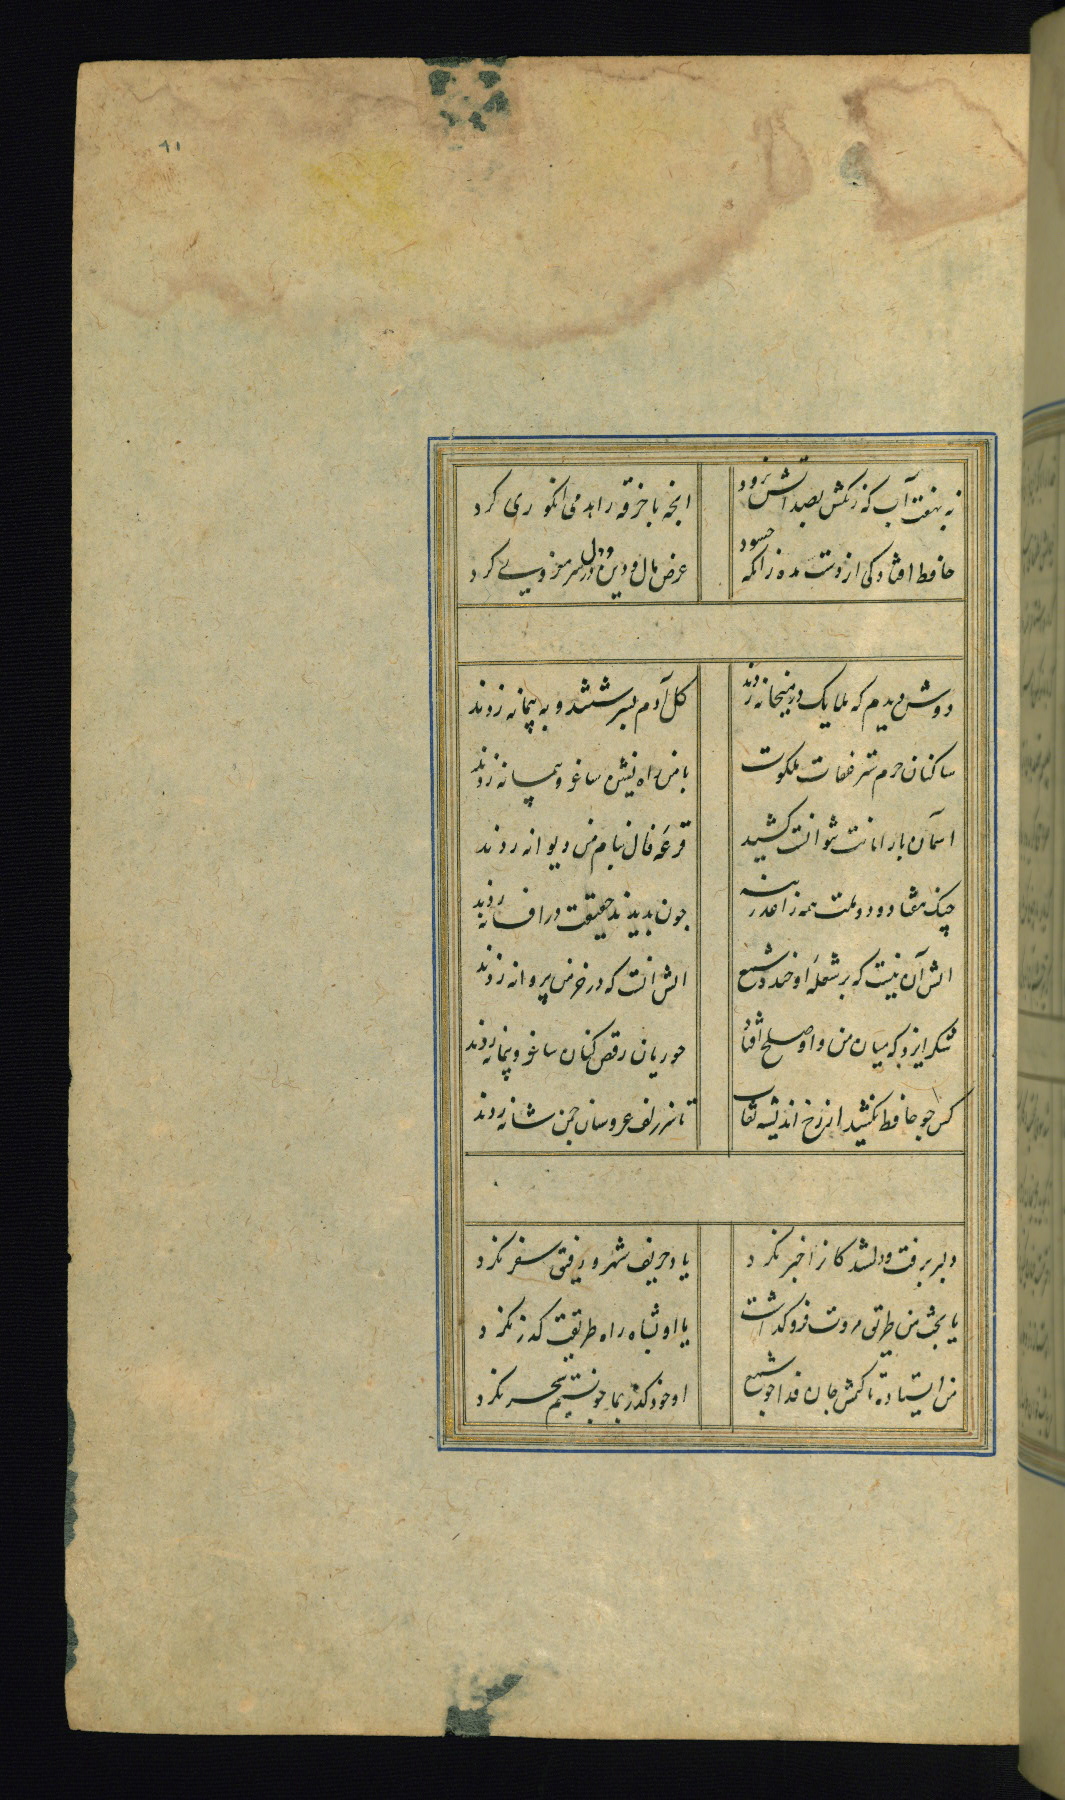 ٩١
نه بهفت آب که رنکش بصد آتش نرود
انچه با خرقه زاهد می انکوری کرد
حافظ افتادکی از دست مده زانکه حسود
عرض مال و دین و دل در سر مغروری کرد
دوش دیدم که ملایک در میخانه زدند
کل آدم بسرشتند و به پیمانه زدند
ساکنان حرم ستر عفاف ملکوت
با من راه نشین ساغر و پیمانه زدند
اسمان بار امانت نتوانست کشید
قرعه فال بنام من دیوانه زدند
جنک هفتاد و دو ملت همه را عذر بنه
چون ندیدند حقیقت در افسانه زدند
اتش آن نیست که بر شعله او خندد شمع
اتش انست که در خرمن پروانه زدند
شکر ایزد که میان من و او صلح افتاد
حوریان رقص کنان ساغر و پیمانه زدند
کس چو حافظ نکشید از رخ اندیشه نقاب
تا سر زلف عروسان چمن شانه زدند
دلبر برفت و دلشدکانرا خبر نکرد
یاد حریف شهر و رفیق سفر نکرد
یا بخت من طریق مروت فروکذاشت
یا او بشاه راه طریقت کذر نکرد
من ایستاده تا کنمش جان فدا چو شمع
او خود کذر بما چو نسیم سحر نکرد